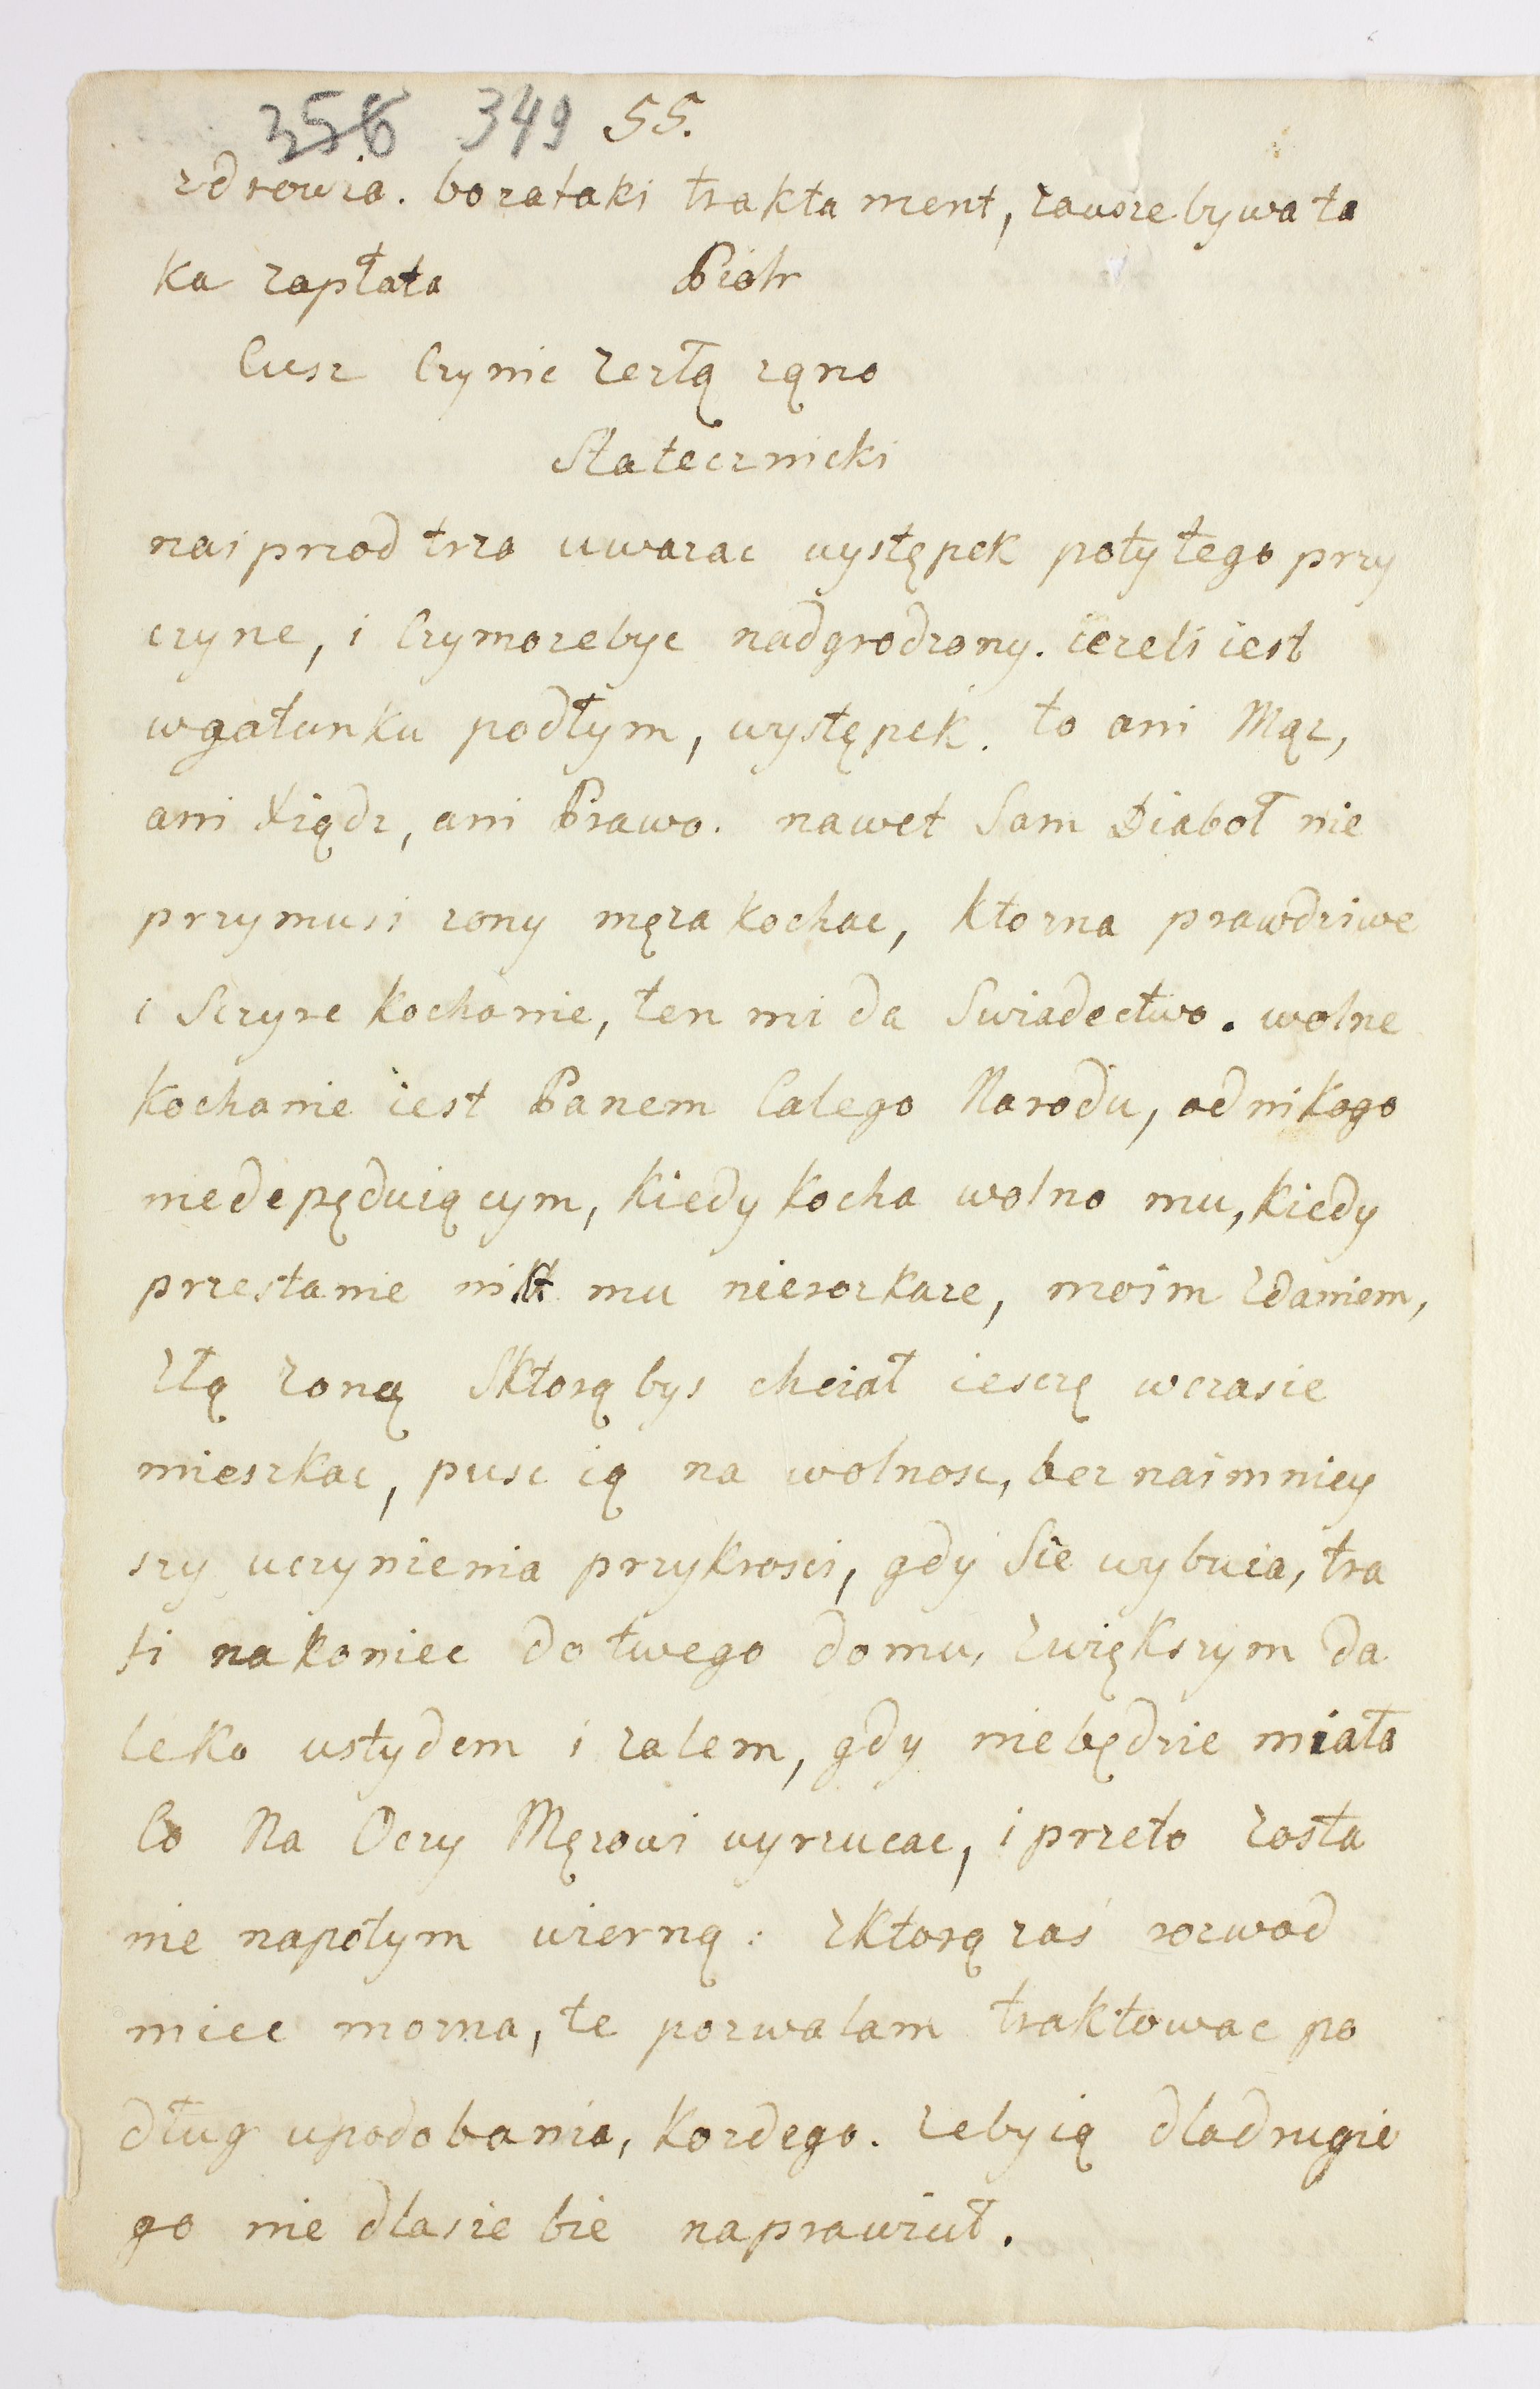 356 349 55.
zdrowia. bozataki traktament, zawsze bywa ta
ka zapłata Piotr
Cusz Czynic zezłą ząno
Statecznicki
naiprzod trza uwazac występek potytego przy
czyne, i Czymozebyc nadgrodzony. iezeli iest
wgatunku podłym, występek. to ani Mąz,
ani Xiądz, ani Prawo. nawet Sam Diaboł nie
przymusi zony męza kochac, kto zna prawdziwe
i Sczyre kochanie, ten mi da Swiadectwo. wolne
kochanie iest Panem Calego Narodu, od nikogo
niedepęduiącym, kiedy kocha wolno mu, kiedy
przestanie nikt mu nierozkaze, moim zdaniem,
złą zoną Sktorą bys chciał iesczę wczasie
mieszkac, pusc ią na wolnosc, bez naimniey
szy uczynienia przykrosci, gdy Sie wybuia, tra
fi nakoniec do twego domu, zwiększym da
leko wstydem i zalem, gdy niebędzie miała
Co Na Oczy Męzowi wyrzucac, i przeto zosta
nie napotym wierną: zktorą zaś rozwod
miec mozna, te pozwalam traktowac po
dług upodobania, kozdego. zebyią dladrugie
go nie dlasie bie naprawiuł.